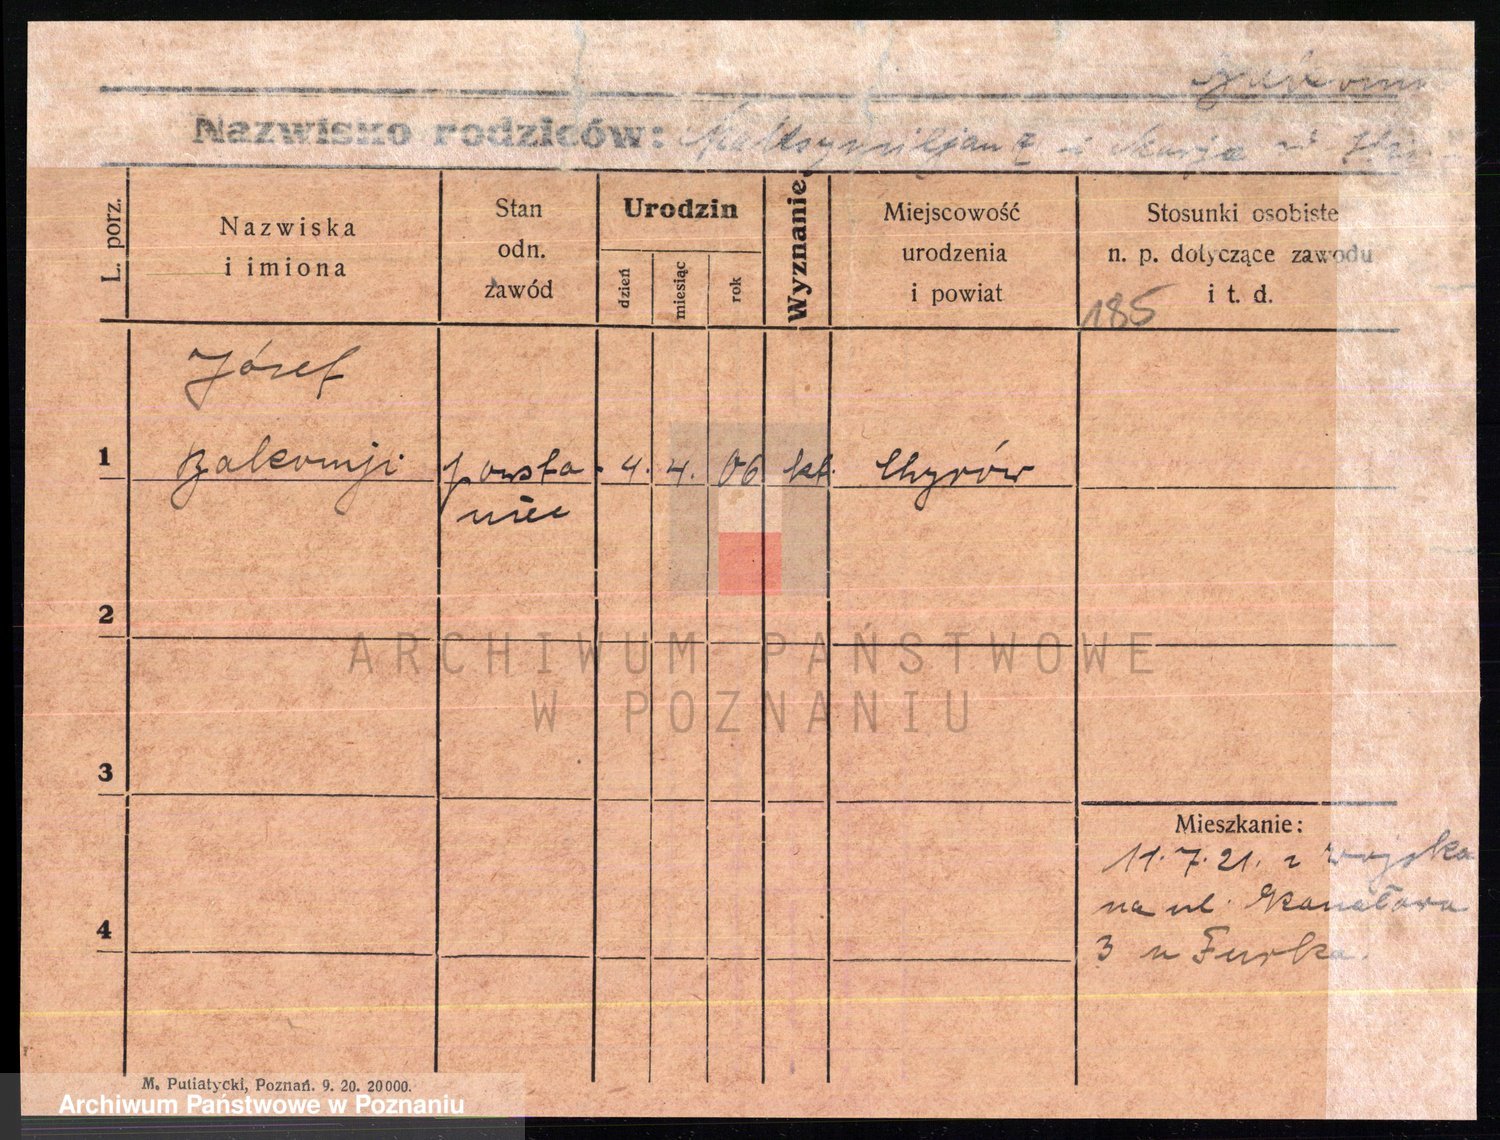 Nazwisko rodziców: Maksymiljan i Marja
L. porz.
Nazwiska
i imiona
Stan
odn.
zawód
Urodzin
dzień
miesiąc
rok
Wyznanie
Miejscowość
urodzenia
i powiat
Stosunki osobiste
n. p. dotyczące zawodu
i t. d.
185
Józef
1 powsta 4. 4. 06 kt. Chyrów
niec
2
3
4
Mieszkanie:
11.7.21. z Wojska
na ul. Kanałowa
3 u Furka.
M. Putiatycki, Poznań. 9. 20. 20000.
ARCHIWUM PAŃSTWOWE
W POZNANIU
Archiwum Państwowe w Poznaniu